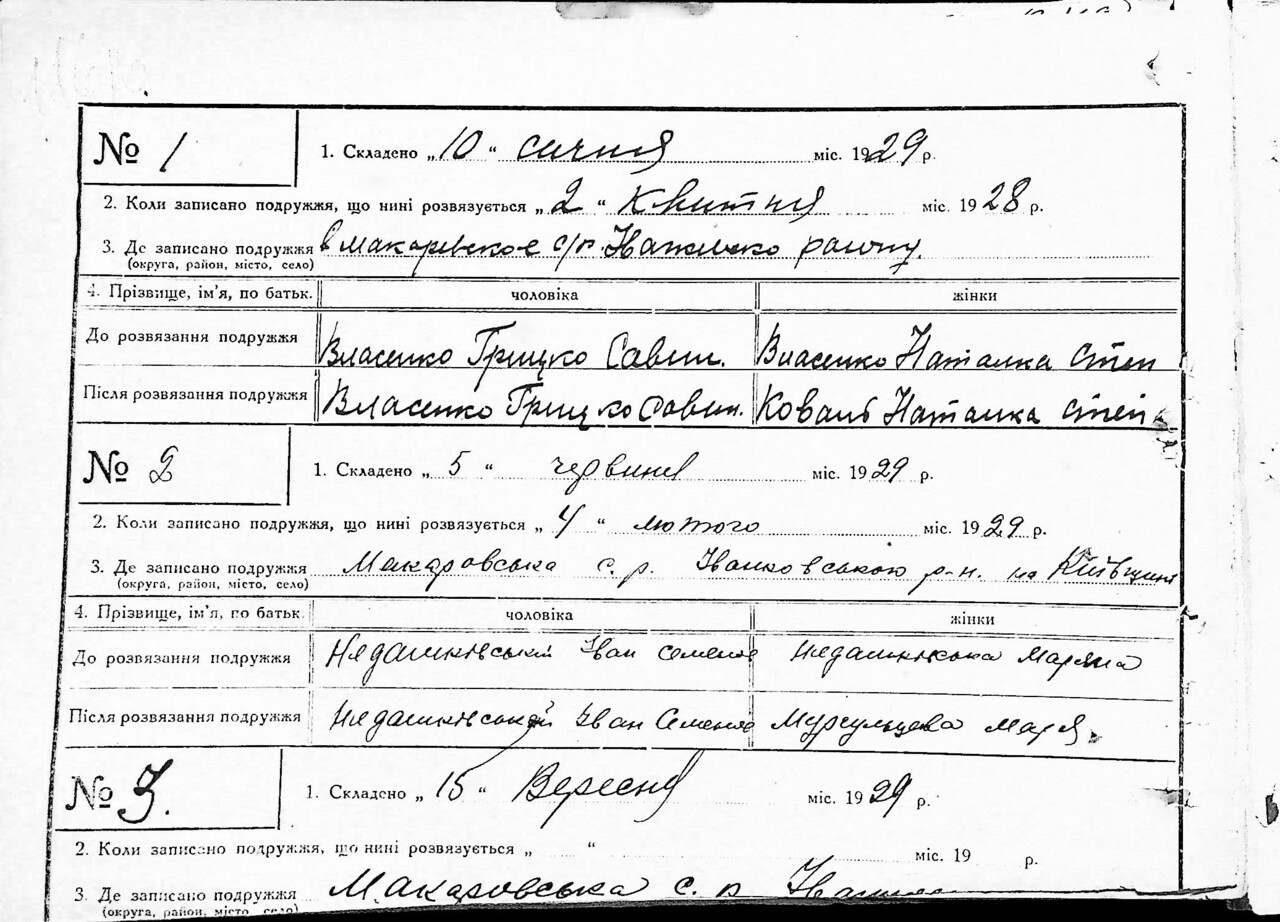 № 1
1. Складено „ 10 “ січня міс. 1929 р.
2. Коли записано подружжя, що нині розвязується „ 2 “ Квитня міс. 1928 р.
3. Де записано подружжя в Макаревское с/р
(округа, район, місто, село)
4. Прізвище, ім'я, по батьк. чоловіка жінки
До розвязання подружжя Власенко Грицко Савин. Власенко Наталка Степ
Після розвязання подружжя Власенко Грицко Савин. Коваль Наталка Степ
№ 2
1. Складено „ 5 “ червиня міс. 1929 р.
2. Коли записано подружжя, що нині розвязується „ 4 “ лютого міс. 1929 р.
3. Де записано подружжя Макаровська с. р. Іванковською р-н. на Київщині
(округа, район, місто, село)
4. Прізвище, ім'я, по батьк. чоловіка жінки
До розвязання подружжя Недашківський Іван Семенов Недашківська
Після розвязання подружжя Недашківський Іван Семенов Маря
№ 3.
1. Складено „ 15 “ Вересня міс. 1929 р.
2. Коли записано подружжя, що нині розвязується „ “ міс. 19 р.
3. Де записано подружжя Макаровська с. р
(округа, район, місто, село)